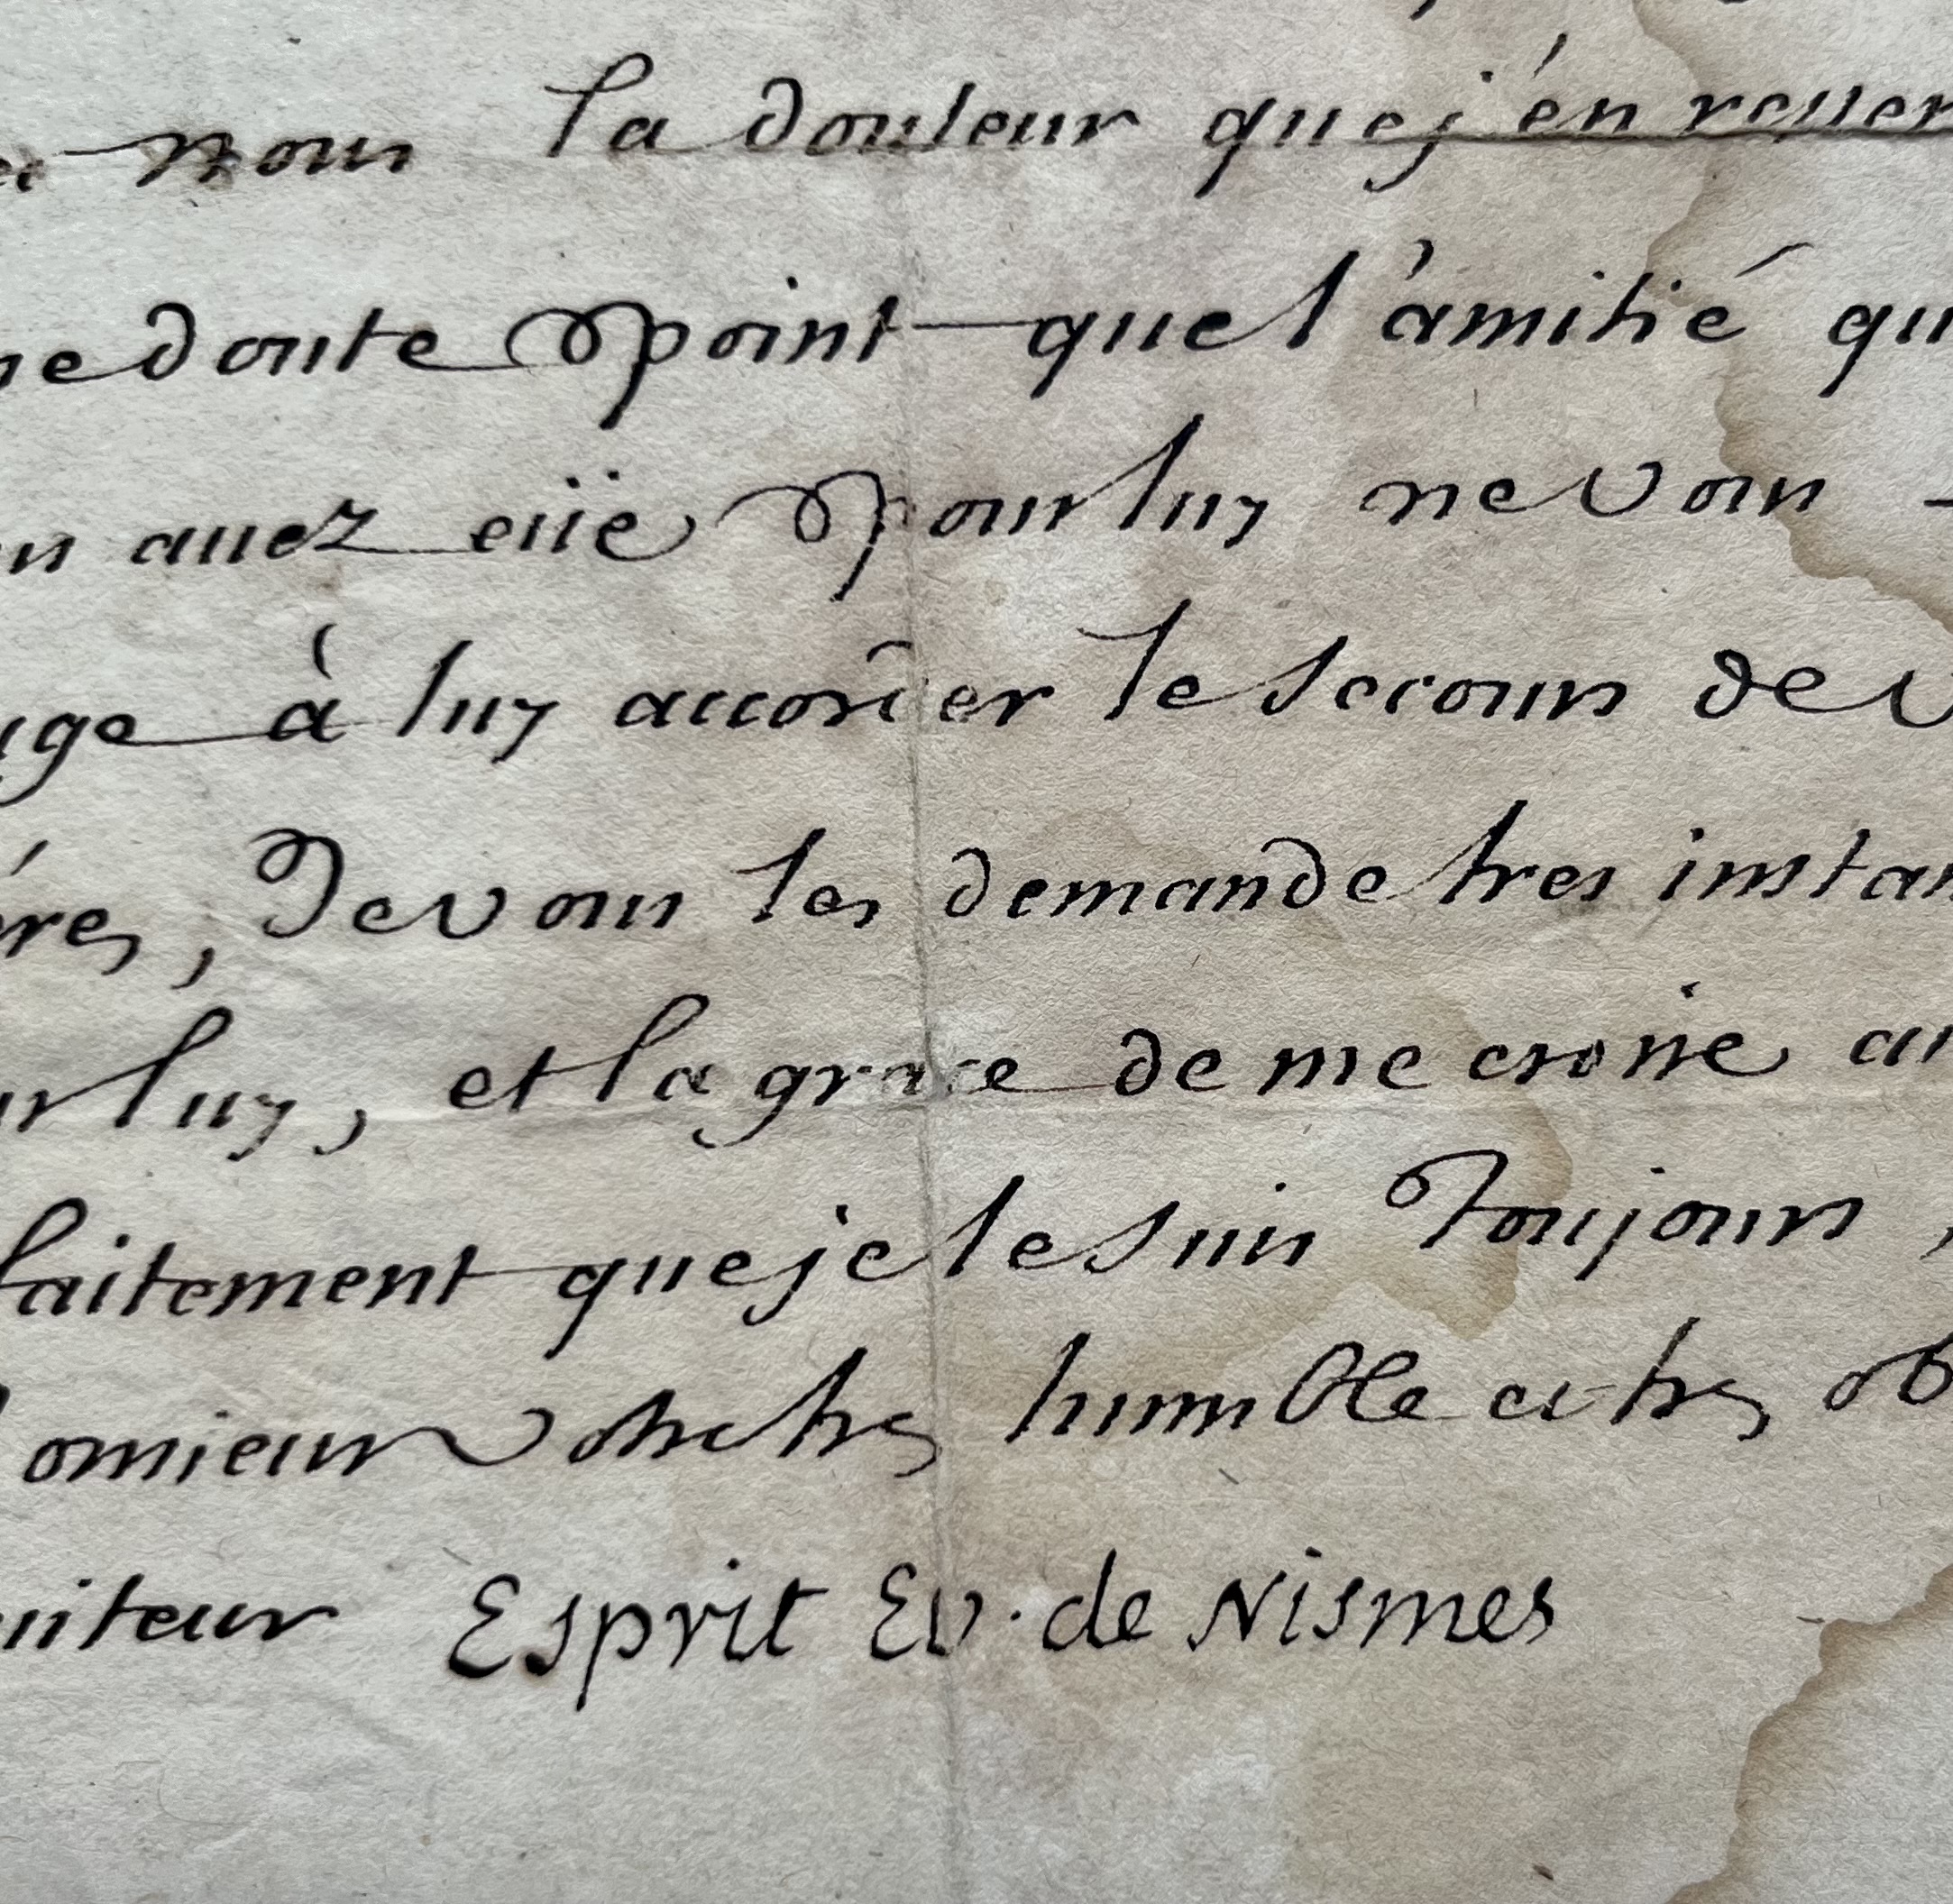 nous la douleur que j'en ressen
ne doute point que l'amitié qu
auez eüe pour luy ne vous
uge à luy accorder le secours de v
éres, Je vous les demande tres instan
ur luy, et la grace de me croire au
faitement que je le suis Toujours,
Monsieur votre tres humble et tres ob
uiteur Esprit Ev. de Nismes